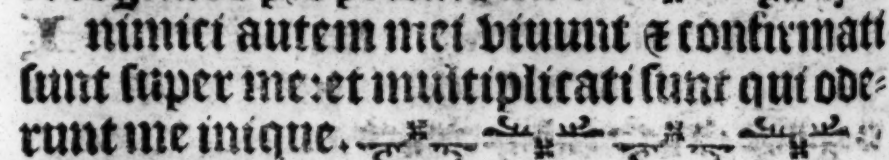 Inimici autem mei viuunt & confirmati
sunt super me: et multiplicati sunt qui ode-
runt me inique.